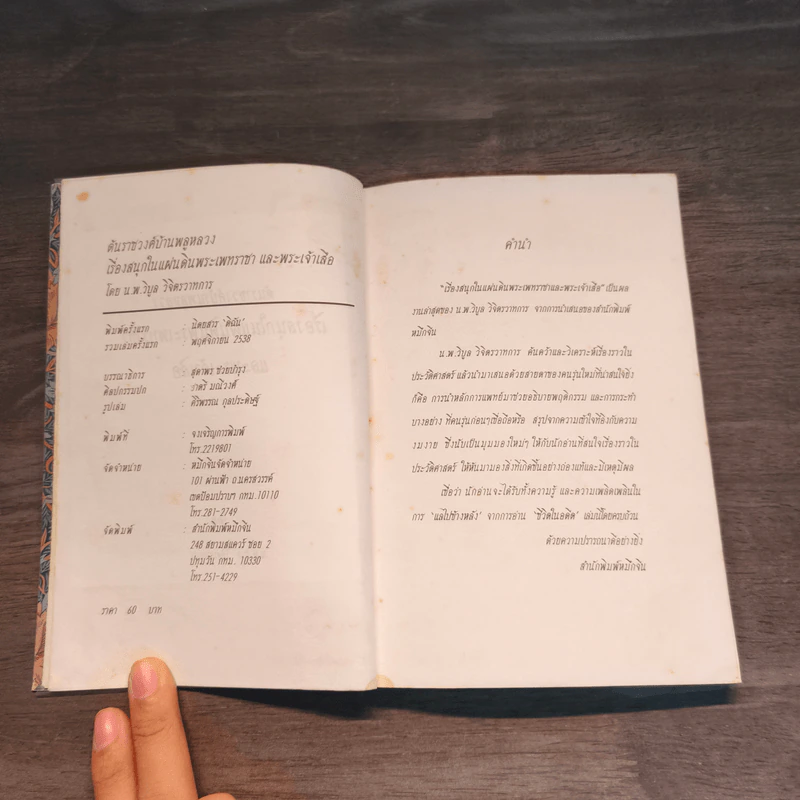 ต้นราชวงศ์บ้านพลูหลวง
เรื่องสนุกในแผ่นดินพระเพทราชา และพระเจ้าเสือ
โดย น.พ.วิบูล วิจิตรวาทการ
พิมพ์ครั้งแรก : นิตยสาร 'ดิฉัน'
รวมเล่มครั้งแรก : พฤศจิกายน 2538
บรรณาธิการ : สุดาพร ช่วยบำรุง
ศิลปกรรมปก : ราตรี มณีวงศ์
รูปเล่ม : ศิริพรรณ กุลประดิษฐ์
พิมพ์ที่ : จงเจริญการพิมพ์
โทร.2219801
จัดจำหน่าย : หมึกจีนจัดจำหน่าย
101 ผ่านฟ้า ถ.นครสวรรค์
เขตป้อมปราบฯ กทม.10110
โทร.281-2749
จัดพิมพ์ : สำนักพิมพ์หมึกจีน
248 สยามสแควร์ ซอย 2
ปทุมวัน กทม. 10330
โทร.251-4229
ราคา 60 บาท
คำนำ
"เรื่องสนุกในแผ่นดินพระเพทราชาและพระเจ้าเสือ" เป็นผล
งานล่าสุดของ น.พ.วิบูล วิจิตรวาทการ จากการนำเสนอของสำนักพิมพ์
หมึกจีน
น.พ.วิบูล วิจิตรวาทการ ค้นคว้าและวิเคราะห์เรื่องราวใน
ประวัติศาสตร์ แล้วนำมาเสนอด้วยสายตาของคนรุ่นใหม่ที่น่าสนใจยิ่ง
ก็คือ การนำหลักการแพทย์มาช่วยอธิบายพฤติกรรม และการกระทำ
บางอย่าง ที่คนรุ่นก่อนๆเชื่อถือหรือ สรุปจากความเข้าใจที่อิงกับความ
งมงาย ซึ่งนับเป็นมุมมองใหม่ๆ ให้กับนักอ่านที่สนใจเรื่องราวใน
ประวัติศาสตร์ ให้หันมามองสิ่งที่เกิดขึ้นอย่างถ่องแท้และมีเหตุมีผล
เชื่อว่า นักอ่านจะได้รับทั้งความรู้ และความเพลิดเพลินใน
การ 'แลไปข้างหลัง' จากการอ่าน 'ชีวิตในอดีต' เล่มนี้โดยครบถ้วน
ด้วยความปรารถนาดีอย่างยิ่ง
สำนักพิมพ์หมึกจีน